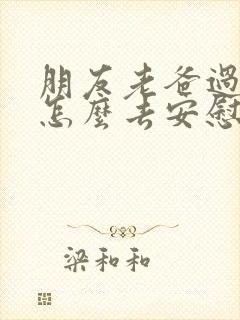 朋友老爸過
怎麼去安慰
梁和和